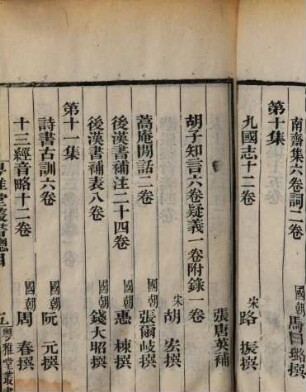 南齋集六卷詞二卷 國朝馬曰璐撰
第十集
九國志十二卷 宋路振撰
張唐英補
胡子知言六卷疑義一卷附錄一卷 宋胡宏撰
蒿庵閒話二卷 國朝張爾岐撰
後漢書補注二十四卷 國朝惠棟撰
後漢書補表八卷 國朝錢大昭撰
第十一集
詩書古訓六卷 國朝阮元撰
十三經音略十二卷 國朝周春撰
粵雅堂叢書總目 五 粵雅堂叢